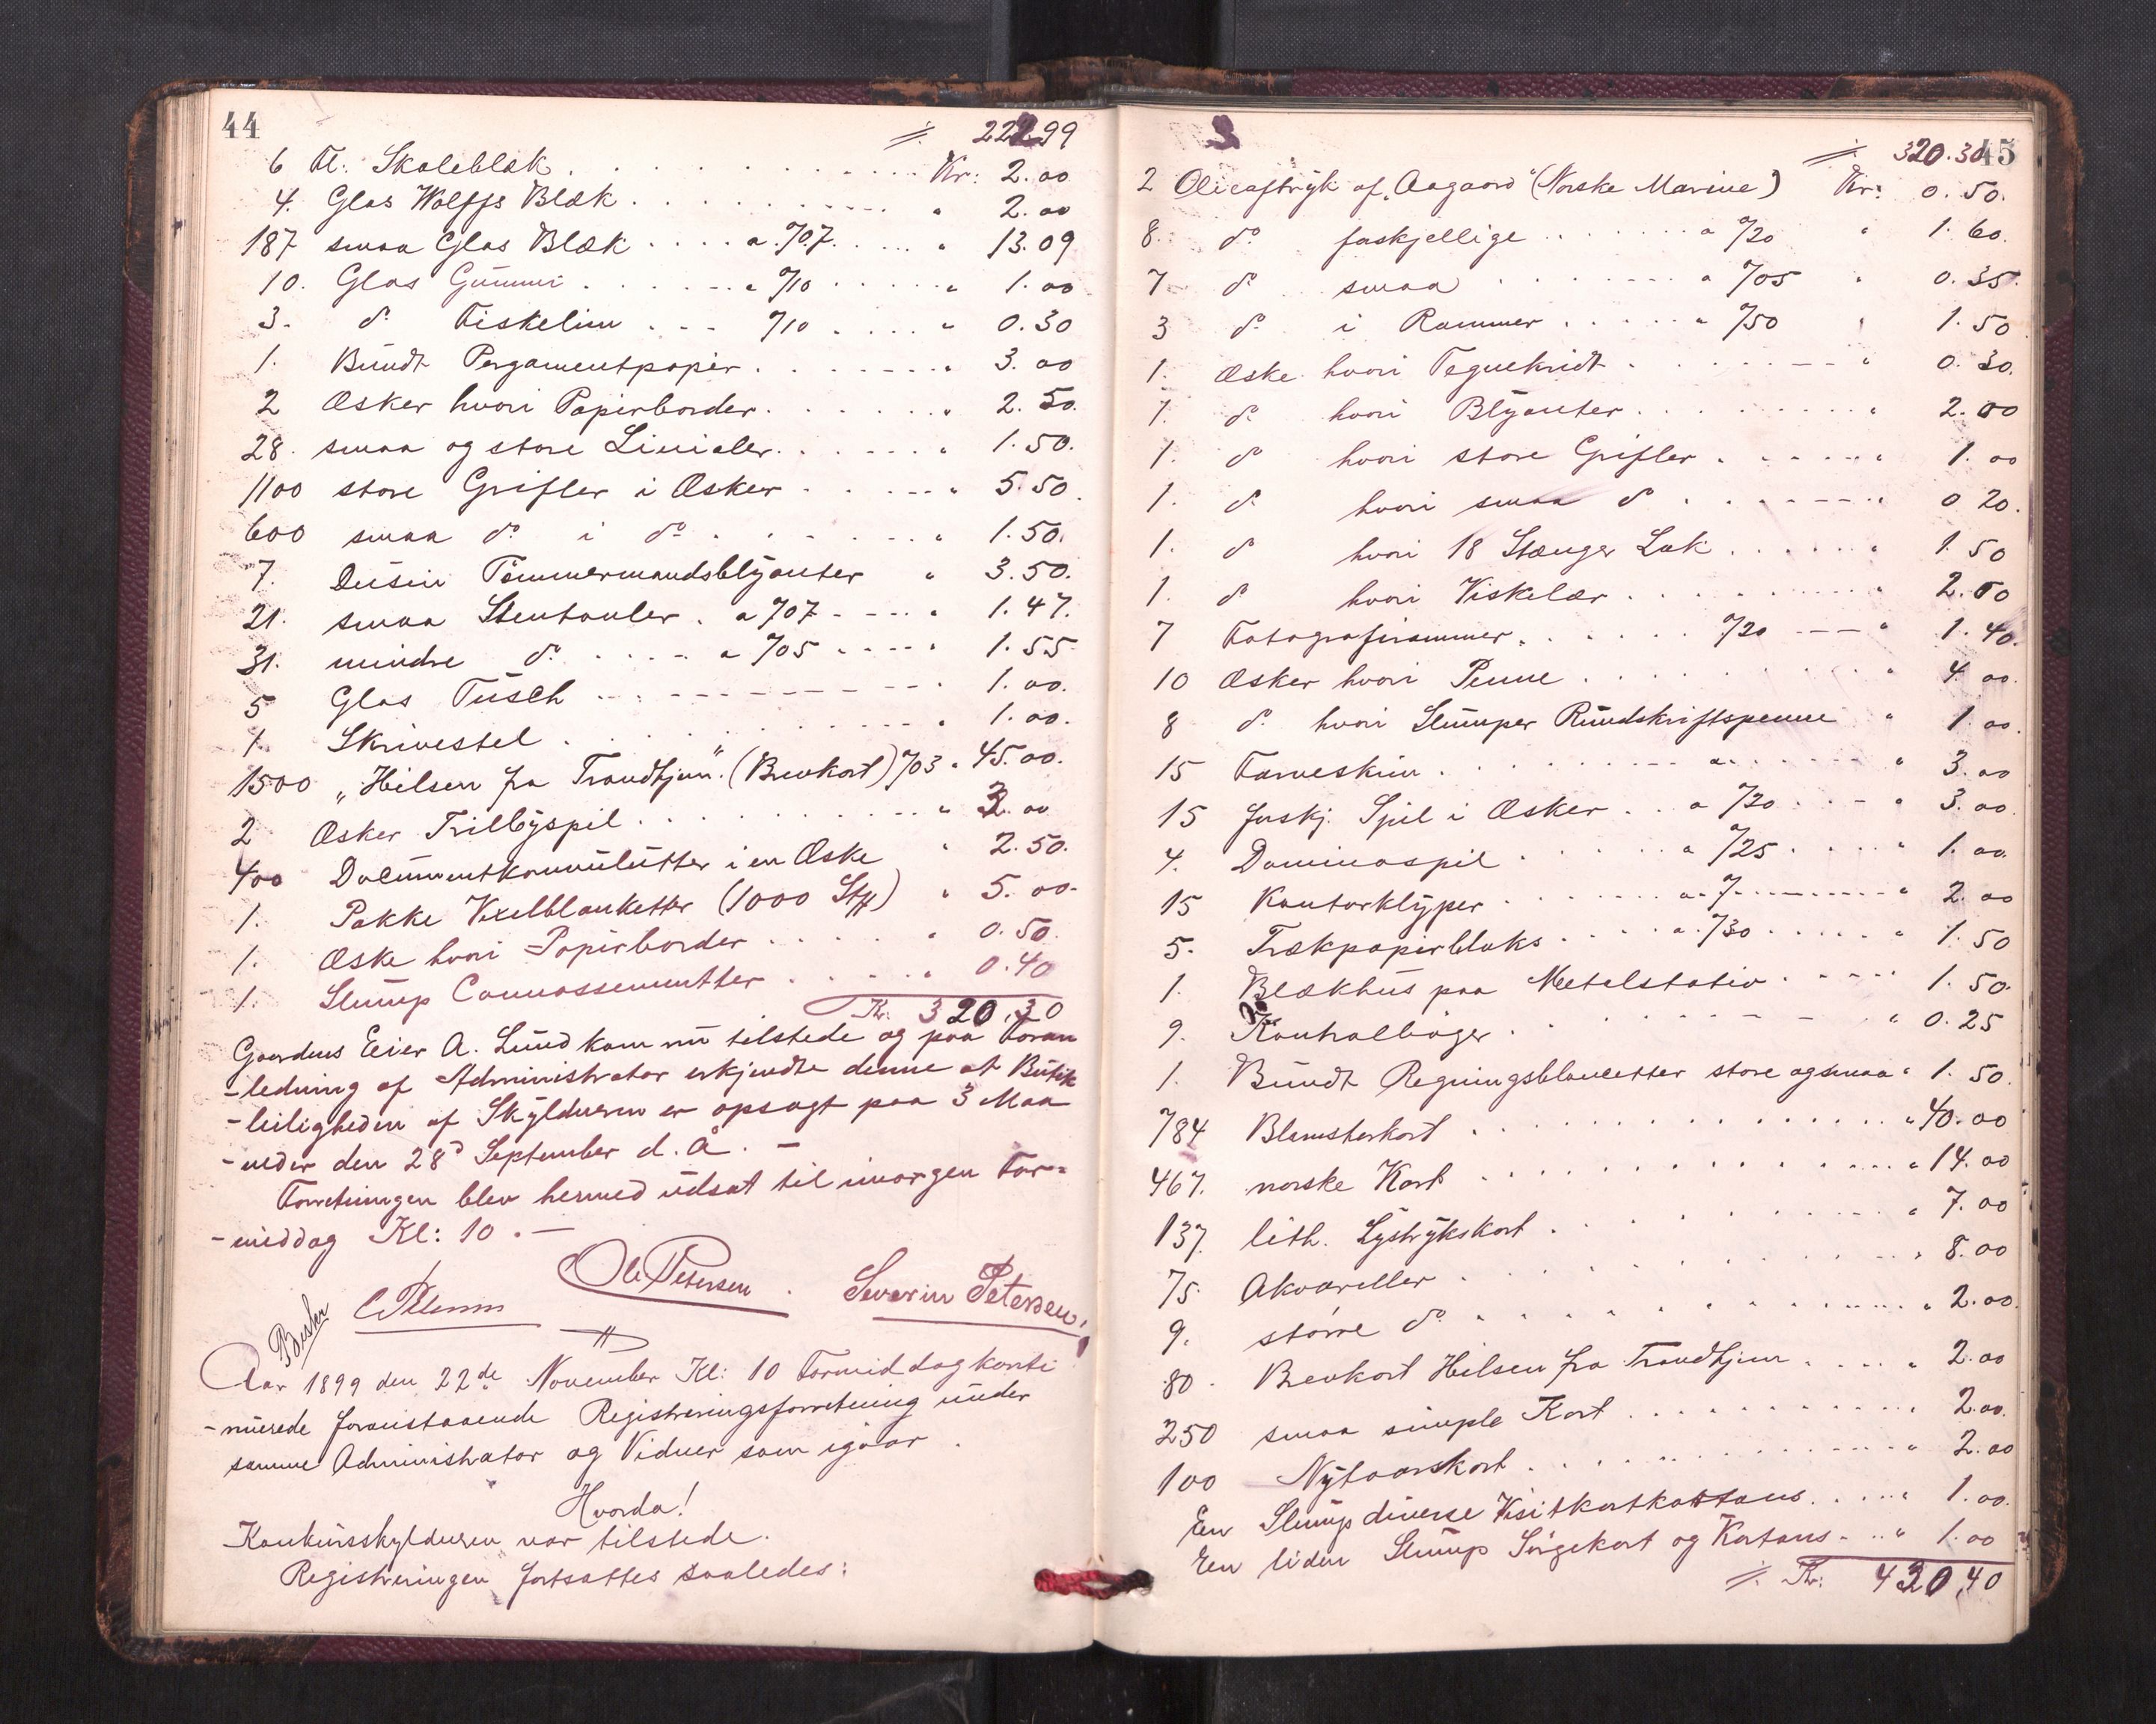 44
⁒ 222.99
6 Fl: Skoleblæk . . . . . Kr: 2.00
4. Glas Wolffs Blæk . . . . . " 2.00
187 smaa Glas Blæk . . . . a. %07. . . . " 13.09
10. Glas Gummi . . . . . " %10 . . . . " 1.00
3. do Fiskelim . . . %10 . . . . " 0.30
1. Bundt Pergamentpapir . . . . . " 3.00
2 Æsker hvori Papirborder . . . . . " 2.50.
28. smaa og store Linialer . . . . . " 1.50.
1100 store Grifler i Æsker . . . . " 5.50.
600 smaa do i do . . . . . " 1.50.
7. Dusin Tömmermandsblyanter " 3.50.
21. smaa Stentavler . a %07 - - - . " 1.47.
31. mindre do . . . . a %05 . . . . " 1.55
5 Glas Tusch . . . . . " 1.00.
1. Skrivestel . . . . . " 1.00.
1500 „Hilsen fra Trondhjem". (Brevkort) %03 " 45.00.
2 Æsker Trillbyspil . . . . . " 3.00
400 Documentkonvulutter i en Æske " 2.50.
1. Pakke Vexelblanketter (1000 Stk) " 5.00.
1. Æske hvori Papirborder . . . . . " 0.50.
1. Slump Connossementter . . . . " 0.40
Kr: 320.30
Gaardens Eier A. Lund kom nu tilstede og paa Foran
-ledning af Administrator erkjendte denne at Butik
-leiligheden af Skyldneren er opsagt paa 3 Maa
-neder den 28d September d. A. -
Forretningen blev hermed udsat til imorgen For=
-middag Kl: 10 . -
Ole Petersen . Severin Petersen.
Aar 1899 den 22de November Kl: 10 Formiddag konti
-nuerede foranstaaende Registreringsforretning under
samme Administrator og Vidner som igaar .
Hvorda!
Konkursskyldneren var tilstede.
Registreringen fortsattes saaledes:
45
⁒ 320.30
2 Olieaftryk af „Aagaard" (Norske Marine) Kr: 0.50.
8. do forskjellige . . . . . a %20 " 1.60.
7 do smaa . . . . . a %05 " 0.35.
3 do i Rammer . . . . . " %50 " 1.50
1. Æske hvori Tegnekridt . . . . . " 0.30.
1. do hvori Blyanter . . . . . " 2.00
1. do hvori store Grifler . . . . . " 1.00
1. do hvori smaa do . . . . . " 0 20.
1. do hvori 18 Stænger Lak . . . . . " 1.50
1. do hvori Viskelær . . . . . " 2.00
7 Fotografirammer . . . . . %20 - - - " 1.40.
10 Æsker hvori Penne . . . . . " 4.00.
8 do hvori Slumper Rundskriftspenne " 1.00.
15 Farveskrin . . . . . a . . . . . " 3.00
15 forskj. Spil i Æsker . . a %20 . . - " 3.00.
4. Dominospil . . . . . a %25 . . . . " 1.00.
15 Kontorklyper . . . . . a % . . . . . " 2.00
5. Trækpapirbloks . . . . a. %30 . . . . . " 1.50
1. Blækhus paa Metalstativ . . . . 1.50.
9. Kontralbøger . . . . . " 0.25
1. Bundt Regningsblancetter store og smaa " 1.50.
784 Blomsterkort . . . . . " 40.00
467. norske Kort . . . . . " 14.00
137. lith. Lystrykskort . . . . . " 7.00
75. Akvareller . . . . . " 8.00
9. større do . . . . . " 2.00.
80. Brevkort Hilsen fra Trondhjem . . . . " 2.00
250 smaa simple Kort . . . . . " 2.00.
100 Nytaarskort . . . . . " 2.00
En Slump diverse Visitkortkattans . . . . " 1.00.
En liden Slump Sörgekort og Kartons - . . " 1.00
⁒ Kr: 420.40